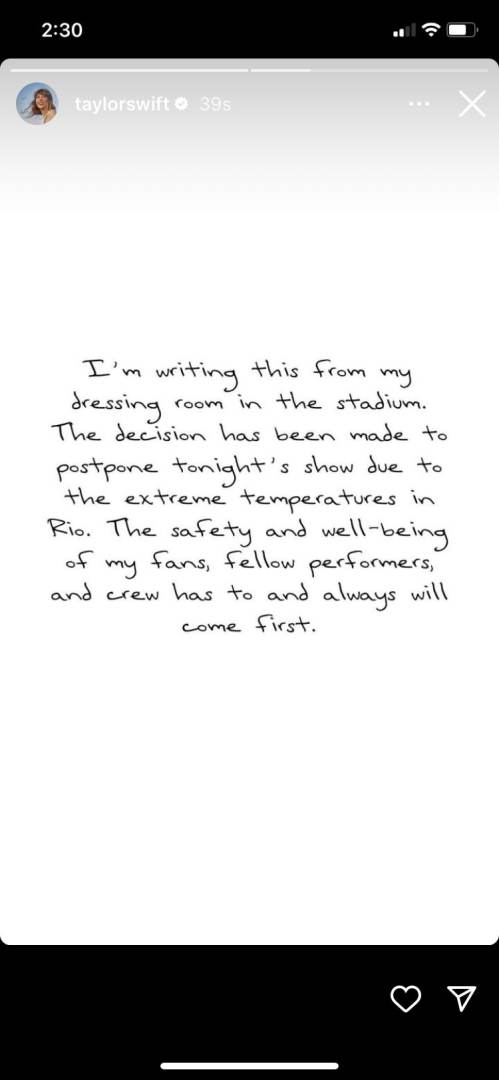 2:30
taylorswift 39s
I'm writing this from my
dressing room in the stadium.
The decision has been made to
postpone tonight's show due to
the extreme temperatures in
Rio. The safety and well-being
of my fans, fellow performers,
and crew has to and always will
come first.